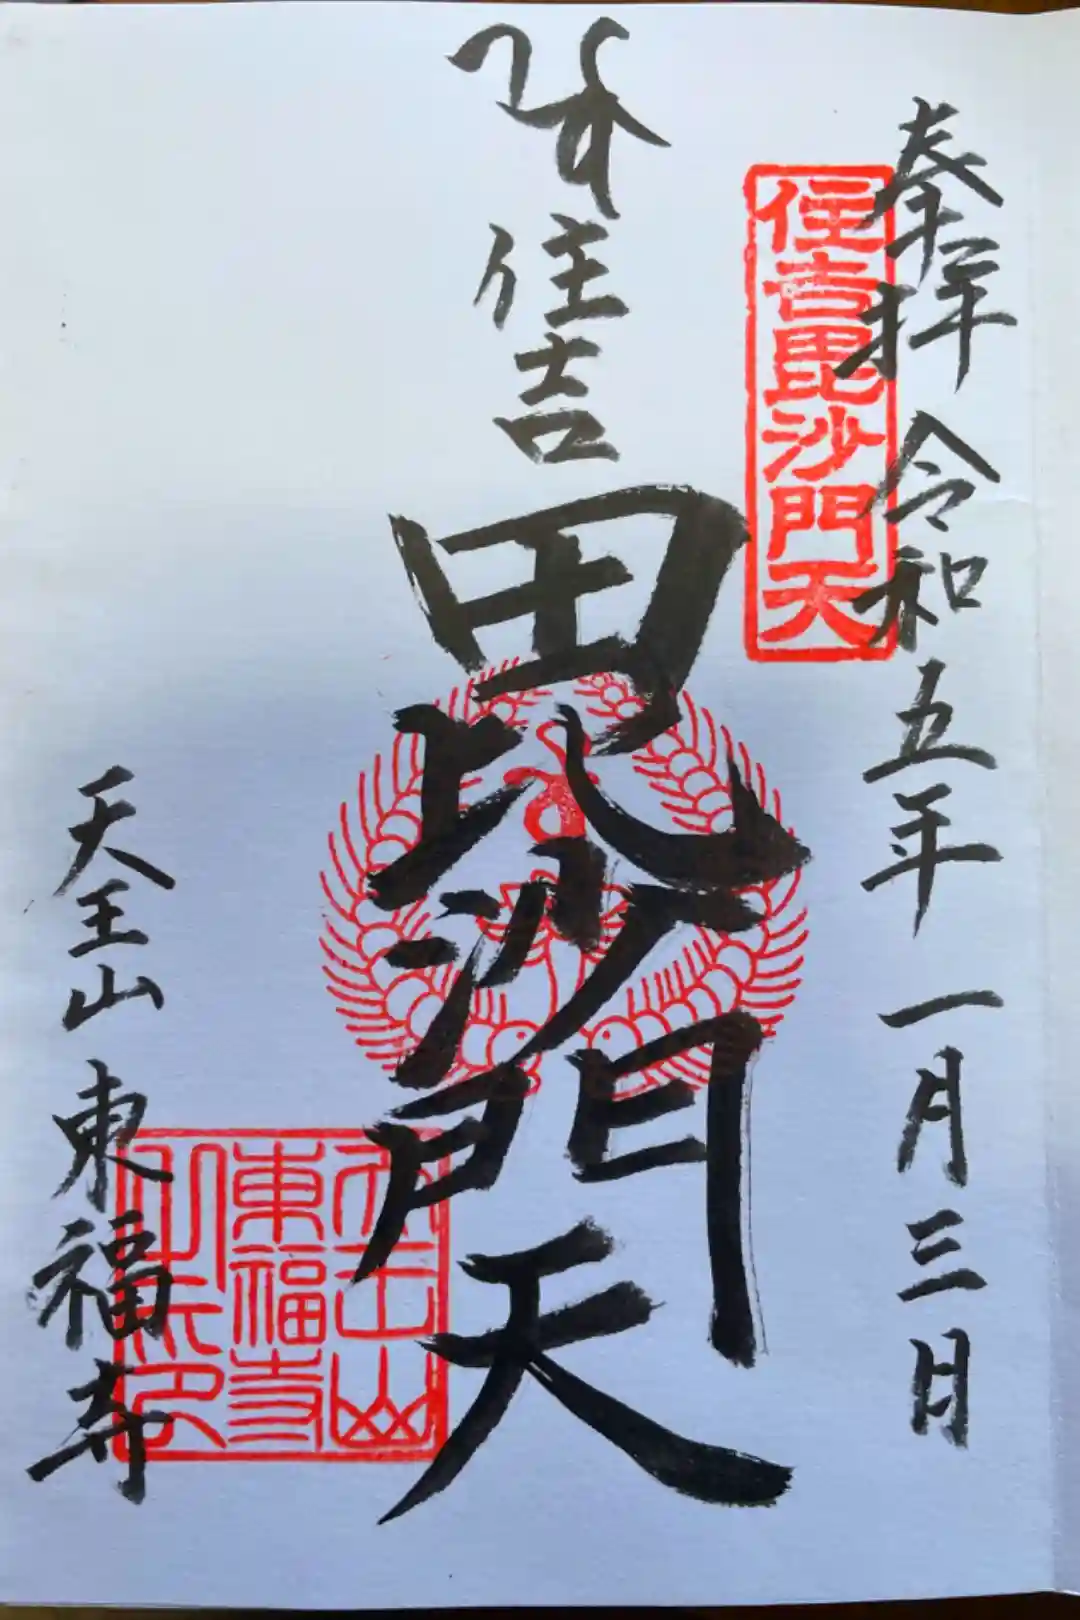 奉拝 令和五年一月三日
住吉毘沙門天
住吉
毘沙門天
天王山
東福寺
之印
天王山 東福寺